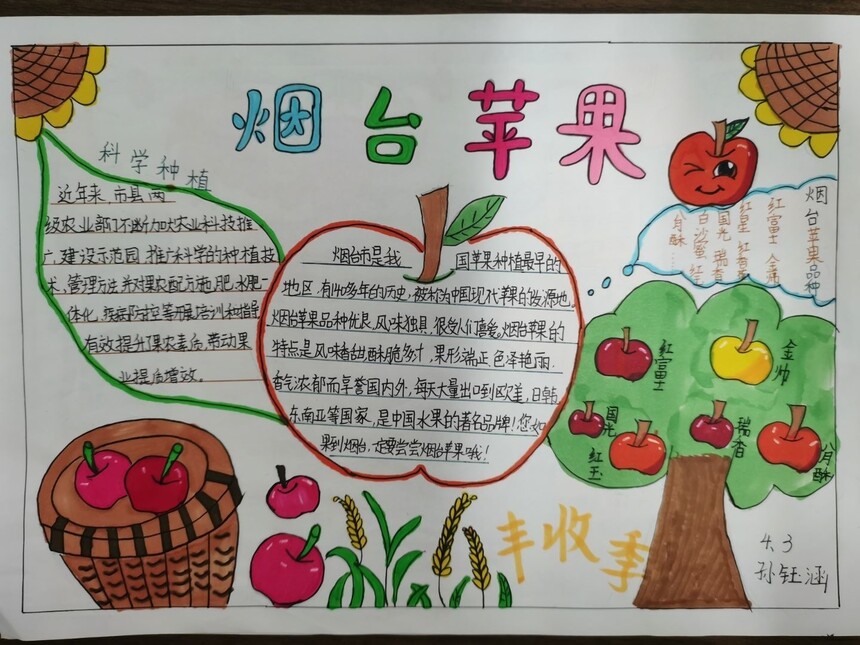 烟台苹果
科学种植
近年来,市县两
级农业部门不断加大农业科技推
广,建设示范园,推广科学的种植技
术、管理方法,并对果农配方施肥、水肥一
体化、疾病防控等开展培训和指导
有效提升了果农素质,带动果
业提质增效。
烟台市是我国苹果种植最早的
地区,有140多年的历史,被称为中国现代苹果的发源地,
烟台苹果品种优良,风味独具,很受人们喜爱。烟台苹果的
特点是风味香甜酥脆多汁,果形端正,色泽艳丽.
香气浓郁而享誉国内外,每天大量出口到欧美,日韩,
东南亚等国家,是中国水果的著名品牌!您如
果到烟台,一定要尝尝烟台苹果哦!
烟台苹果品种
红富士 金帅
红星 红香蕉
国光 瑞香
白沙蜜 红
月酥……
红富士
金帅
国光
瑞香
红玉
月酥
丰收季
4.3
孙钰涵